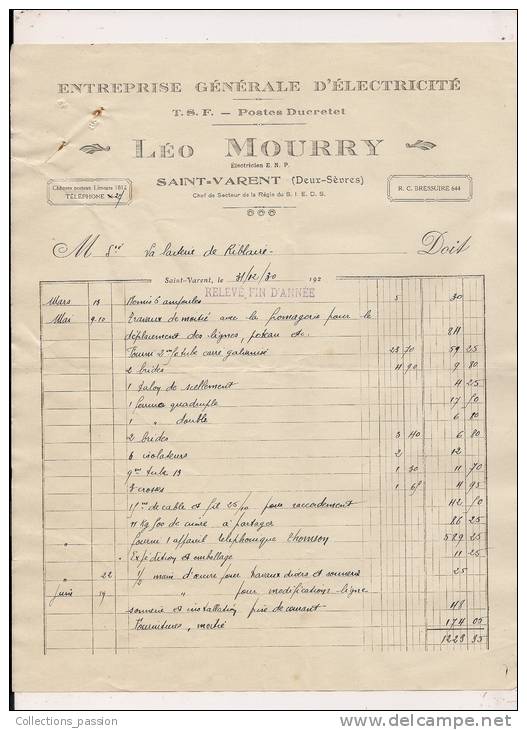 ENTREPRISE GÉNÉRALE D'ÉLECTRICITÉ
T. S. F. — Postes Ducretet
LÉO MOURRY
Électricien E. N. P.
SAINT-VARENT (Deux-Sèvres)
Chef de Secteur de la Régie du S. I. E. D. S.
Chèques postaux Limoges 1812
TÉLÉPHONE
R. C. BRESSUIRE 644
M La laiterie de Riblaire Doit
Saint-Varent, le 31/12/30 192
RELEVÉ FIN D'ANNÉE
Mars 13 Remis 6 ampoules 5 30
Mai 9.10 Travaux de moitié avec la fromagerie pour le
déplacement des lignes, poteau etc. 211
Fourni tube carré galvanisé 23 70 59 25
2 brides 4 90 9 80
1 talon de scellement 4 25
1 ferrure quadruple 17 50
1 " double 6 80
2 brides 3 40 6 80
6 isolateurs 2 12
9 m tube 13 1 30 11 70
3 crosses 1 65 4 95
de cable et fil 25/10 pour raccordement 42 50
Kg 500 de cuivre à partager 86 25
fourni 1 appareil téléphonique Thomson 589 25
Expédition et emballage 11 25
" 22 1/2 main d'œuvre pour travaux divers et sonnerie 25
Juin 19 " pour modifications ligne
sonnerie et installation prise de courant 48
Fournitures, moitié 174 05
1223 35
Collections_passion
www.delcampe.net